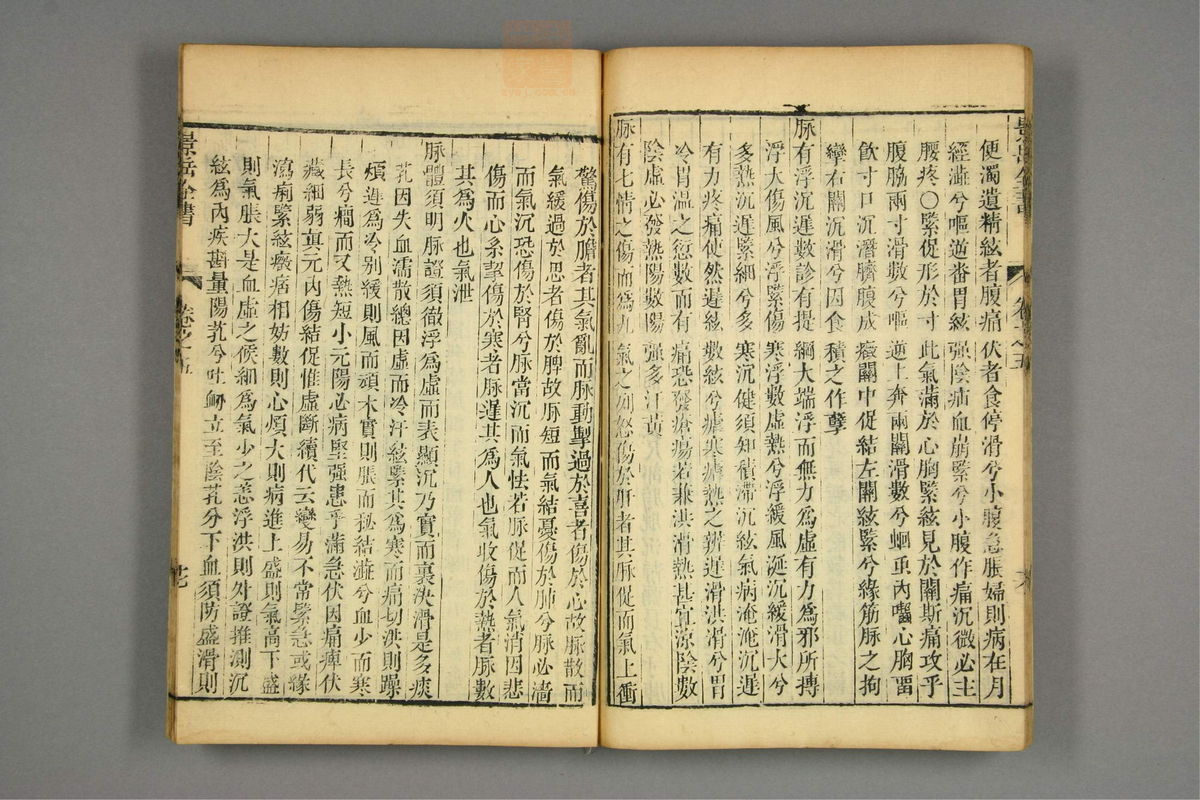 便濁遺精絃者腹痛伏者食停滑兮小腹急脹婦則病在月
經澁兮嘔逆番胃絃強陰疝血崩緊兮小腹作痛沉微必主
腰疼○緊促形於寸此氣滿於心胸緊絃見於關斯痛攻乎
腹脇兩寸滑數兮嘔逆上奔兩關滑數兮蛔虫內嚙心胸留
飲寸口沉潛臍腹成癥關中促結左關絃緊兮緣筋脉之拘
攣右關沉滑兮因食積之作孽
脉有浮沉遲數診有提綱大端浮而無力為虛有力為邪所摶
浮大傷風兮浮緊傷寒浮數虛熱兮浮緩風涎沉緩滑大兮
多熱沉遲緊細兮多寒沉健須知積滯沉絃氣病淹淹沉遲
有力疼痛使然遲絃數絃兮瘧寒瘧熱之辨遲滑洪滑兮胃
冷胃溫之愆數而有痛恐發瘡瘍若兼洪滑熱甚宜涼陰數
陰虛必發熱陽數陽強多汗黃
脉有七情之傷而為九氣之列怒傷於肝者其脉促而氣上衝
驚傷於膽者其氣亂而脉動掣過於喜者傷於心故脉散而
氣緩過於思者傷於脾故脉短而氣結憂傷於肺兮脉必濇
而氣沉恐傷於腎兮脉當沉而氣怯若脉促而人氣消因悲
傷而心系掣傷於寒者脉遲其為人也氣收傷於熱者脉數
其為火也氣泄
脉體須明脉證須徹浮為虛而表顯沉乃實而裏決滑是多痰
芤因失血濡散總因虛而冷汗絃緊其為寒而痛切洪則躁
煩遲為冷别緩則風而頑木實則脹而秘結澁兮血少而寒
長兮癇而又熱短小元陽必病堅強患乎滿急伏因痛痺伏
藏細弱真元內傷結促惟虛斷續代云變易不常緊急或緣
瀉痢緊絃癥痞相妨數則心煩大則病進上盛則氣高下盛
則氣脹大是血虛之候細為氣少之恙浮洪則外證推測沉
絃為內疾斟量陽芤兮吐衄立至陰芤分下血須防盛滑則
景岳全書
卷之五
廿七